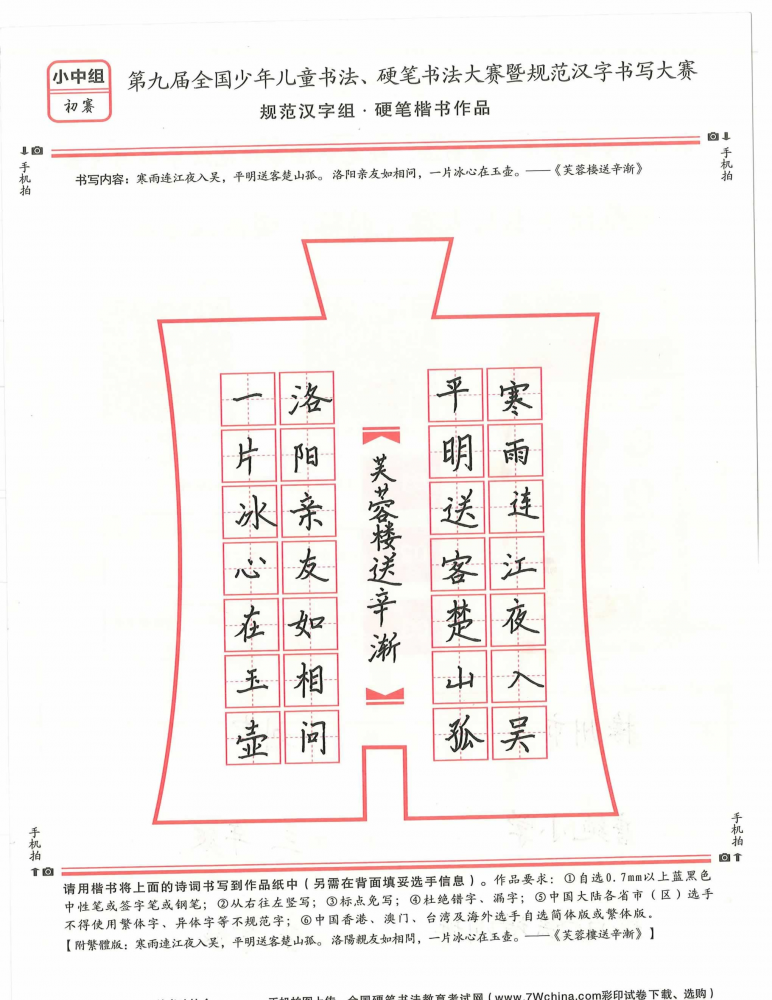 小中组
初赛
第九届全国少年儿童书法、硬笔书法大赛暨规范汉字书写大赛
规范汉字组·硬笔楷书作品
手机拍
手机拍
书写内容：寒雨连江夜入吴，平明送客楚山孤。洛阳亲友如相问，一片冰心在玉壶。——《芙蓉楼送辛渐》
寒雨连江夜入吴
平明送客楚山孤
芙蓉楼送辛渐
洛阳亲友如相问
一片冰心在玉壶
手机拍
手机拍
请用楷书将上面的诗词书写到作品纸中（另需在背面填妥选手信息）。作品要求：①自选0.7mm以上蓝黑色
中性笔或签字笔或钢笔；②从右往左竖写；③标点免写；④杜绝错字、漏字；⑤中国大陆各省市（区）选手
不得使用繁体字、异体字等不规范字；⑥中国香港、澳门、台湾及海外选手自选简体版或繁体版。
【附繁體版：寒雨連江夜入吳，平明送客楚山孤。洛陽親友如相問，一片冰心在玉壺。——《芙蓉樓送辛漸》】
手机拍图上传，全国硬笔书法教育考试网（www.7Wchina.com彩印试卷下载、选购）